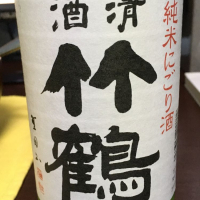 清酒
竹鶴
純米にごり酒